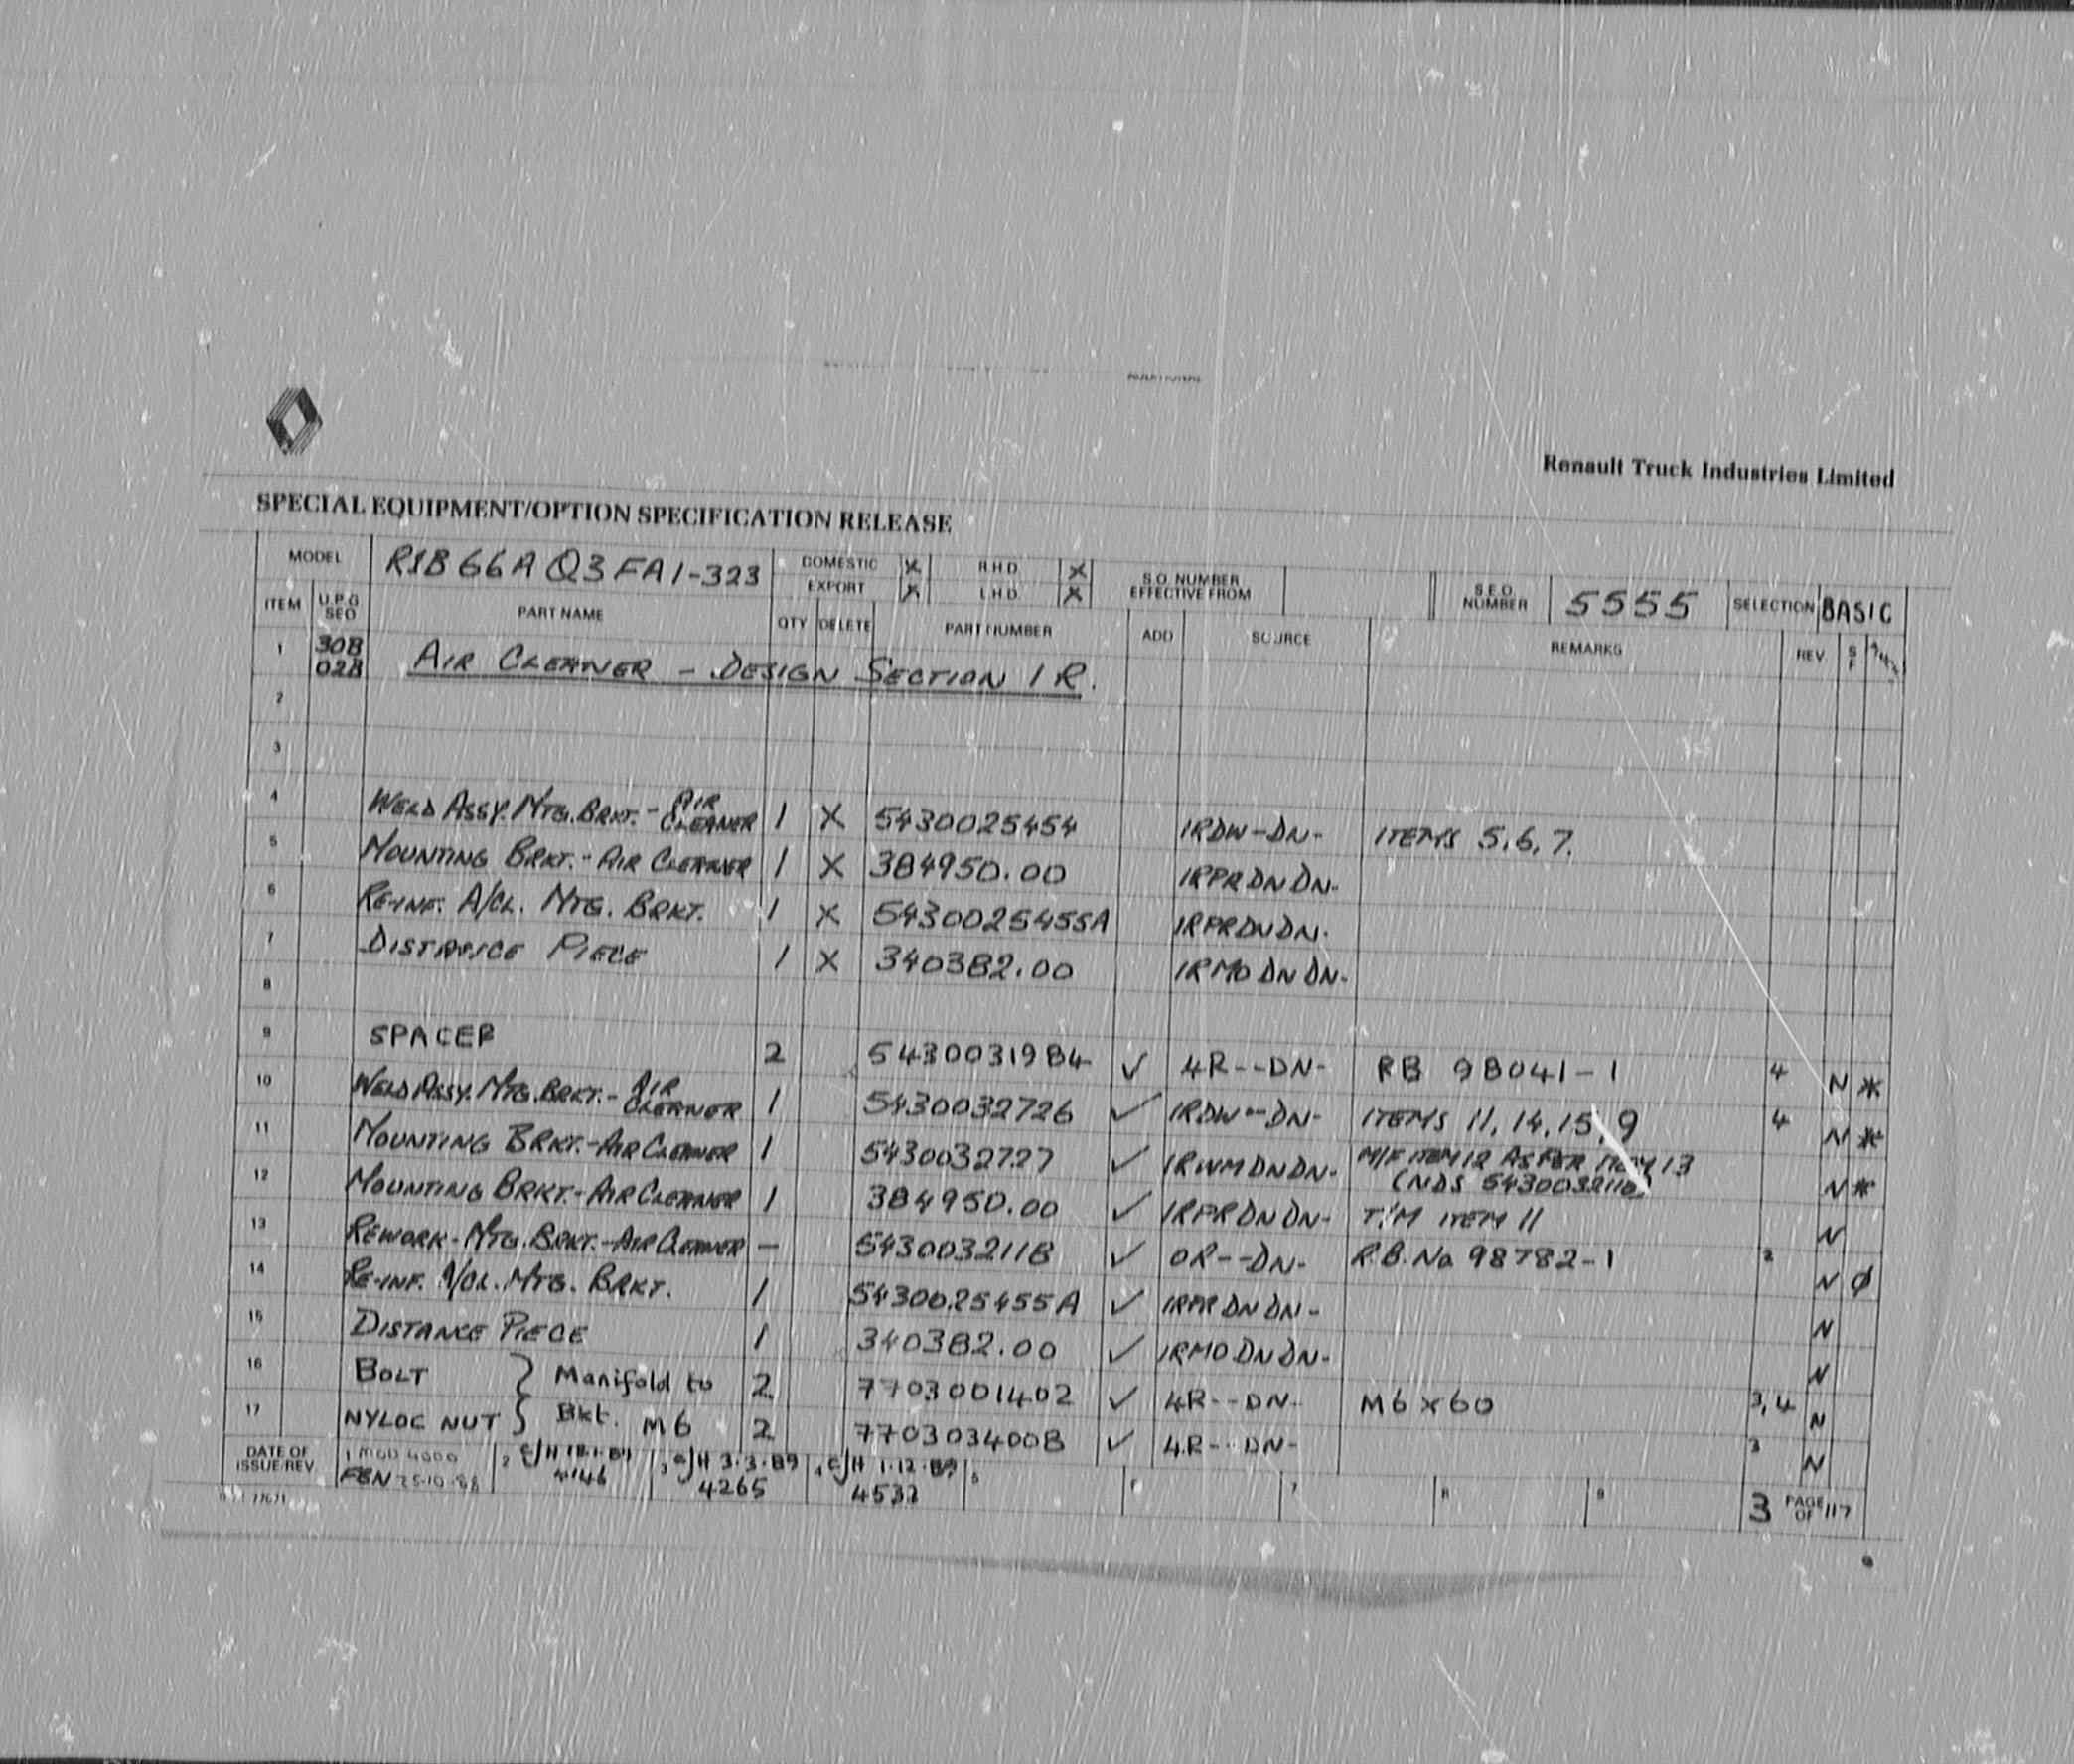 Renault Truck Industries Limited
SPECIAL EQUIPMENT/OPTION SPECIFICATION RELEASE
MODEL R1B66A Q3FA1-323 DOMESTIC X R.H.D. X S.O. NUMBER S.E.O. 5555 SELECTION BASIC
EXPORT X L.H.D. X EFFECTIVE FROM NUMBER
ITEM U.P.G SEQ PART NAME QTY DELETE PART NUMBER ADD SOURCE REMARKS REV S F
1 30B 02B AIR CLEANER - DESIGN SECTION 1R.
2
3
4 WELD ASSY. MTG. BRKT. - AIR CLEANER 1 X 5430025454 IRDW-DN- ITEMS 5,6,7.
5 MOUNTING BRKT. - AIR CLEANER 1 X 384950.00 IRPRDNDN-
6 RE-INF. A/CL. MTG. BRKT. 1 X 5430025455A IRPRDNDN.
7 DISTANCE PIECE 1 X 340382.00 IRMODNDN-
8
9 SPACER 2 5430031984 ✓ 4R--DN- RB 98041-1 4 N *
10 WELD ASSY. MTG. BRKT. - AIR CLEANER 1 5430032726 ✓ IRDW--DN- ITEMS 11, 14, 15, 9 4 N *
11 MOUNTING BRKT. - AIR CLEANER 1 5430032727 ✓ IRWMDNDN- M/F ITEM 12 AS PER ITEM 13
(NDS 5430032118) N *
12 MOUNTING BRKT. - AIR CLEANER 1 384950.00 ✓ IRPRDNDN- T/M ITEM 11 N
13 REWORK - MTG. BRKT. - AIR CLEANER - 5430032118 ✓ OR--DN- R.B. No 98782-1 2 N Ø
14 RE-INF. A/CL. MTG. BRKT. 1 5430025455A ✓ IRPRDNDN- N
15 DISTANCE PIECE 1 340382.00 ✓ IRMODNDN- N
16 BOLT } Manifold to 2 7703001402 ✓ 4R--DN- M6 x 60 3,4 N
17 NYLOC NUT } Bkt. M6 2 7703034008 ✓ 4R--DN- 3 N
DATE OF 1 MOD 4000 2 C/H 18.1.89 3 C/H 3.3.89 4 C/H 1.12.89 5 6 7 8 9 3 PAGE OF 117
ISSUE/REV. FBN 25-10-88 4146 4265